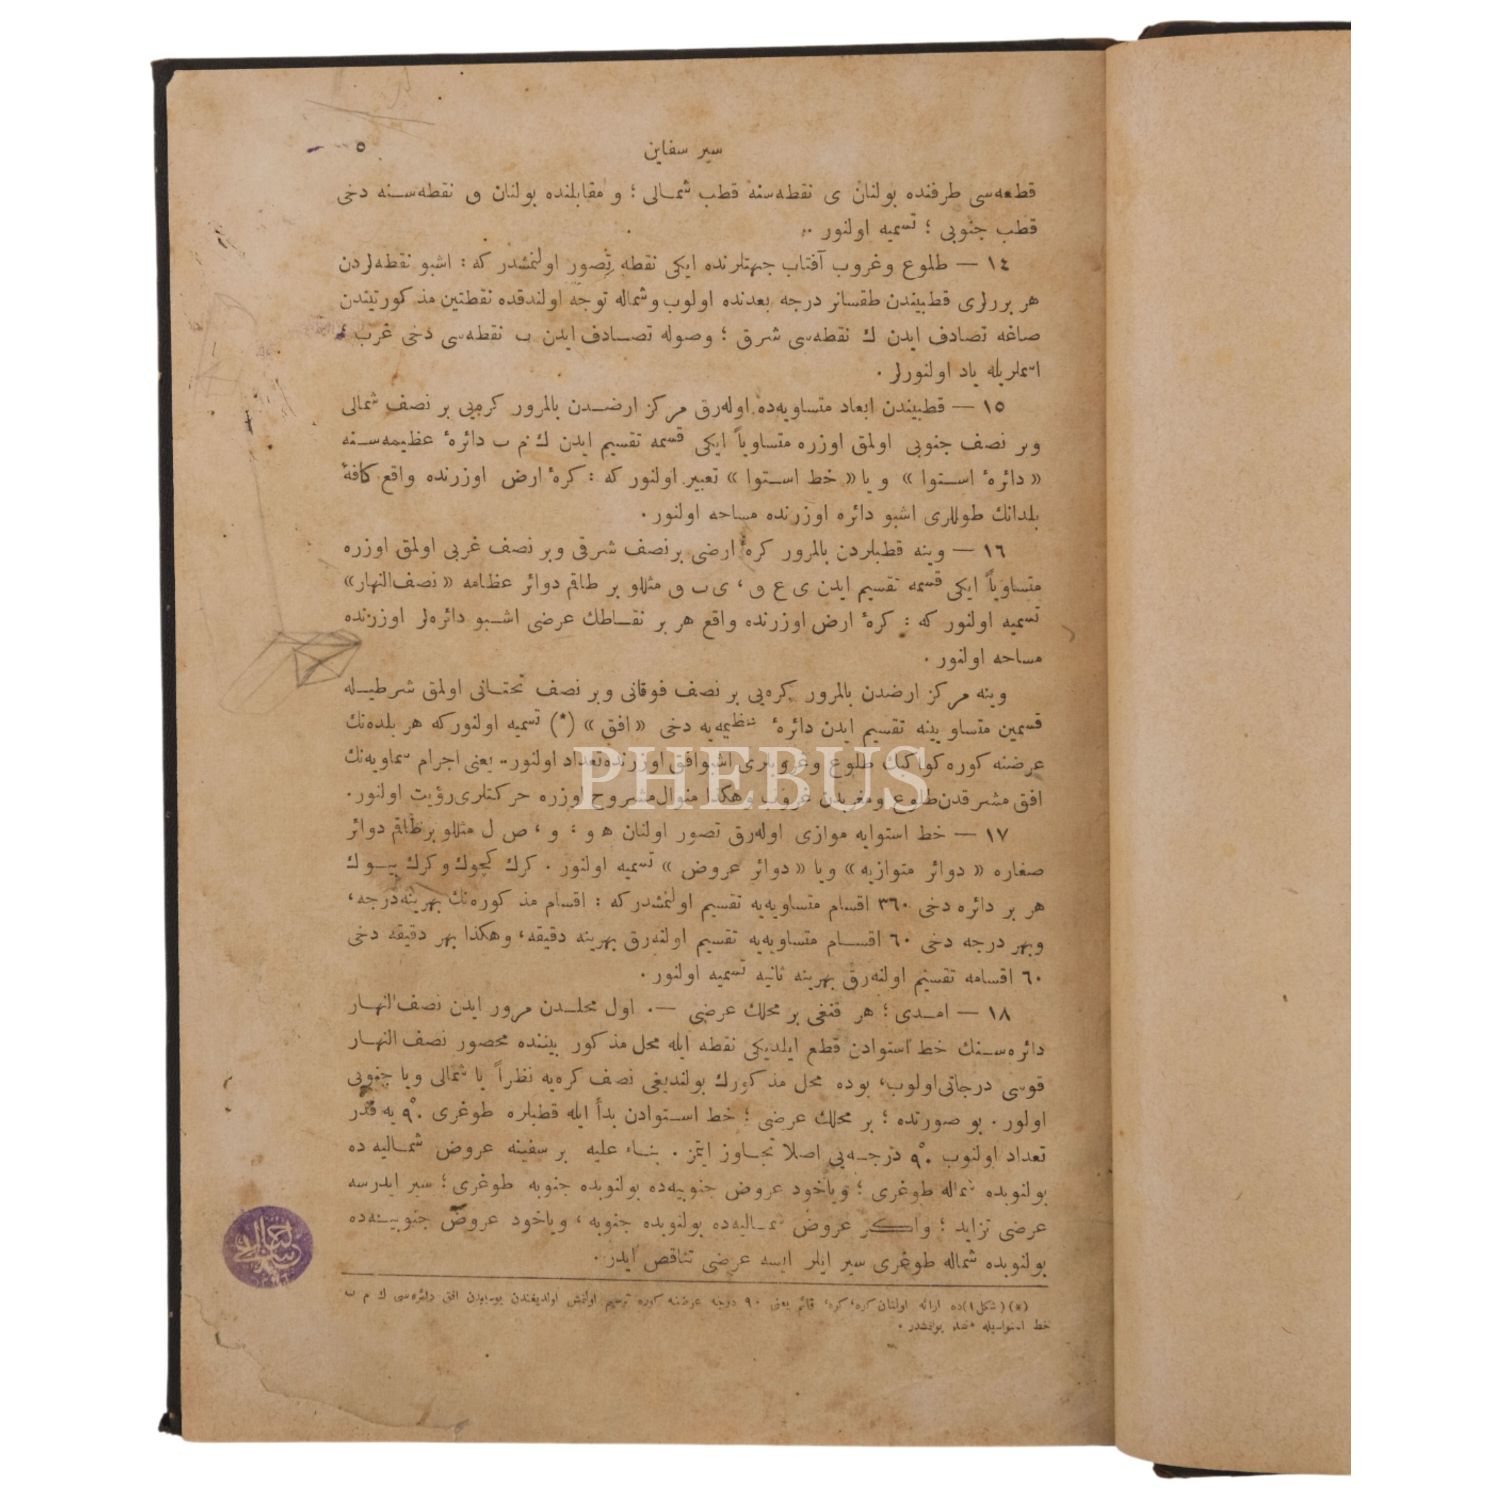 سیر سفاین
٥
قطعه‌سی طرفنده بولنان ی نقطه‌سنه قطب شمـالی ؛ و مقابلنده بولنان ق نقطه‌سـنه دخی
قطب جنوبی ؛ تسمیه اولنور ..
١٤ — طلوع وغروب آفتاب جهتلرنده ایکی نقطه تصور اولنمشدر که : اشبو نقطه‌لردن
هر بررلری قطبیندن طقسانر درجه بعدنده اولوب وشماله توجه اولندقده نقطتین مذکورتیندن
صاغه تصادف ایدن ك نقطه‌سی شرق ؛ وصوله تصـادف ایدن ب نقطه‌سی دخی غرب ؛
اسملریله یاد اولنورلر .
١٥ — قطبیندن ابعاد متساویه‌ده اوله‌رق مرکز ارضـدن بالمرور کره‌یی بر نصف شمالی
وبر نصف جنوبی اولمق اوزره متساویاً ایکی قسمه تقسیم ایدن ك م ب دائرهٔ عظیمه‌سـنه
« دائرهٔ اسـتوا » ویا « خط اسـتوا » تعبیر اولنور که : کرهٔ ارض اوزرنده واقع کافهٔ
بلدانك طوللری اشبو دائره اوزرنده مساحه اولنور .
١٦ — وینه قطبلردن بالمرور کرهٔ ارضی برنصف شرقی وبر نصف غربی اولمق اوزره
متساویاً ایکی قسمه تقسیم ایدن ی ع ق ، ی ب ق مثللو بر طاقم دوائر عظامه « نصف‌النهار »
تسمیه اولنور که : کرهٔ ارض اوزرنده واقع هر بر نقـاطك عرضی اشـبو دائره‌لر اوزرنده
مساحه اولنور .
وینه مرکز ارضدن بالمرور کره‌یی بر نصف فوقانی وبر نصف تحتـانی اولمق شرطیـله
قسمین متساویینه تقسیم ایدن دائرهٔ عظیمه‌یه دخی « افق » (*) تسمیه اولنورکه هر بلده‌نك
عرضنه کوره کواکبك طلوع وغروبلری اشبوافق اوزرنده‌تعداد اولنور .. یعنی اجرام سماویه‌نك
افق مشرقدن‌طلوع ومغربدن غروب وهکذا منوال‌مشروح اوزره حرکتلری‌رؤیت اولنور .
PHEBUS
١٧ — خط استوایه موازی اوله‌رق تصور اولنان ه و ؛ و ، ص ل مثللو برطاقم دوائر
صغاره « دوائر متوازیه » ویا « دوائر عروض » تسمیه اولنور . کرك کچوك وکرك بیـوك
هر بر دائره دخی ٣٦٠ اقسام متساویه‌یه تقسیم اولنمشدرکه : اقسام مذکوره‌نك بهرینه‌درجه ،
وبهر درجه دخی ٦٠ اقسـام متساویه‌یه تقسیم اولنه‌رق بهرینه دقیقه ، وهکذا بهر دقیقه دخی
٦٠ اقسامه تقسیم اولنه‌رق بهرینه ثانیه تسمیه اولنور .
١٨ — امـدی ؛ هر قنغی بر محلك عرضی —. اول محلـدن مرور ایدن نصف‌النهار
دائره‌سـنك خط استوادن قطع ایلدیکی نقطه ایله محل مذکور بیننده محصور نصف النهار
قوسی درجاتی‌اولوب ، بوده محل مذکورك بولندیغی نصف کره‌یه نظراً یا شمالی ویا جنوبی
اولور . بو صورتده ؛ بر محلك عرضی ؛ خط اسـتوادن بدأ ایله قطبلره طوغری ٩٠° یه قدر
تعداد اولنوب ٩٠° درجـه‌یی اصلا تجـاوز ایتمز . بنـاء علیه بر سفینه عروض شمـالیه ده
بولنوبده شماله طوغری ؛ ویاخود عروض جنوبیه‌ده بولنوبده جنوبه طوغری ؛ سیر ایدرسه
عرضی تزاید ؛ واکـر عروض شمـالیه‌ده بولنوبده جنوبه ، ویاخود عروض جنوبیـه‌ده
بولنوبده شماله طوغری سیر ایلر ایسه عرضی تناقص ایدر .
(*) (شکل ١) ده ارائه اولنان کره ، کرهٔ قائم یعنی ٩٠ درجه عرضنه کوره ترسیم اولنمش اولدیغندن بوسایدن افق دائره‌سی ك م ب
خط استوا بولنمشدر .